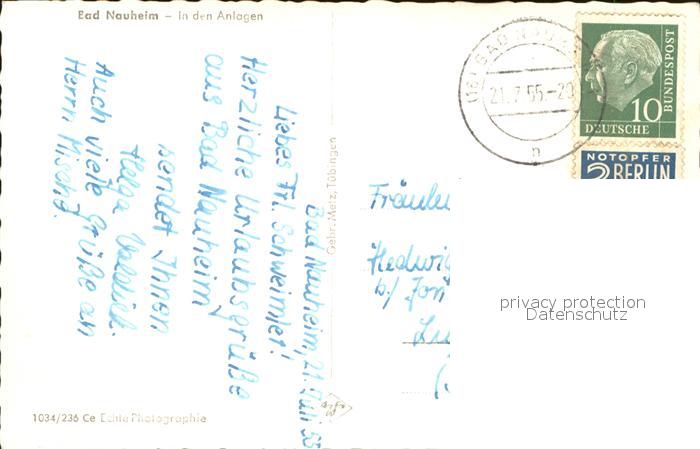 Bad Nauheim – In den Anlagen
Bad Nauheim, 21. Juli 55
Liebes Frl. Schweimler!
Herzliche Urlaubsgrüße
aus Bad Nauheim
sendet Ihnen
Helga
Auch viele Grüße an
Herrn
Gebr. Metz, Tübingen
1034/236 Ce Echte Photographie
(16) BAD NAU
21.7.55.-20
n
10
DEUTSCHE
BUNDESPOST
NOTOPFER
2 BERLIN
Fräule
Hedwig
b./
privacy protection
Datenschutz